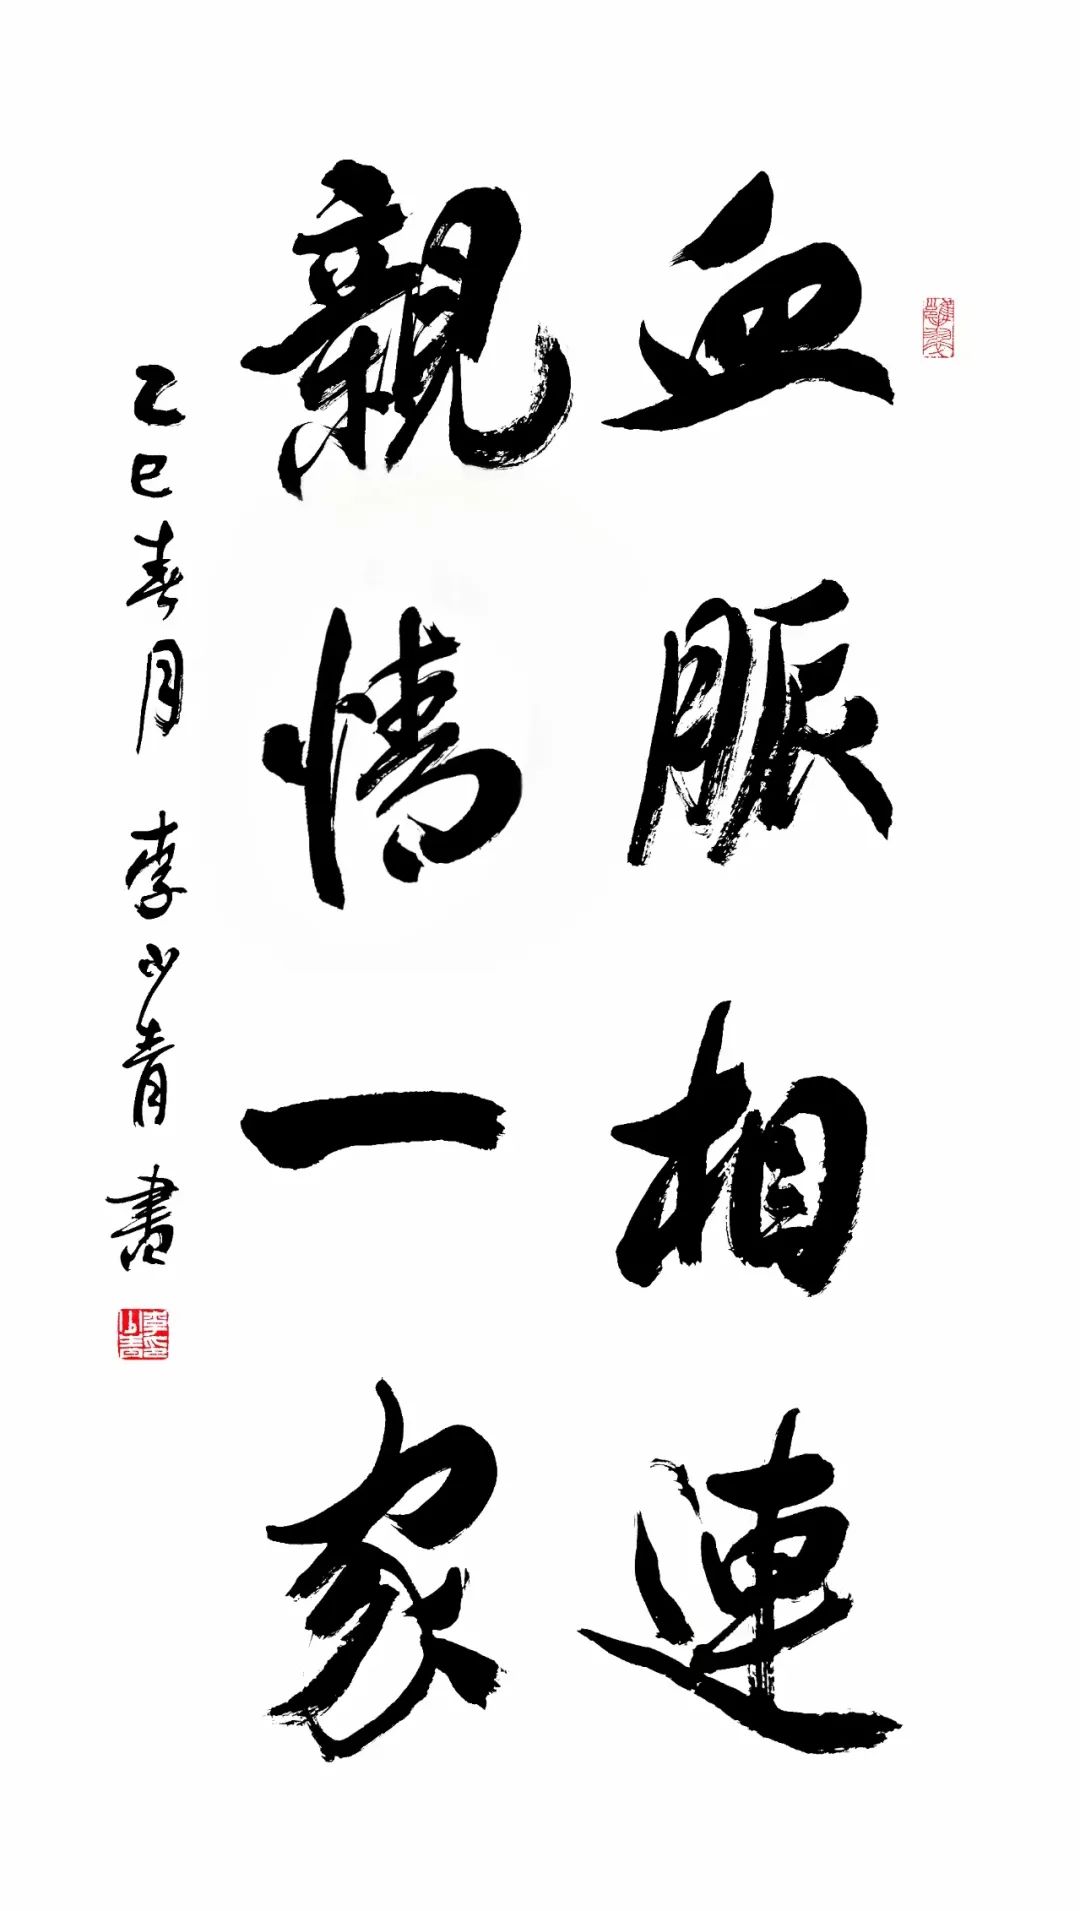 血脈相連
親情一家
乙巳春月 李少青書